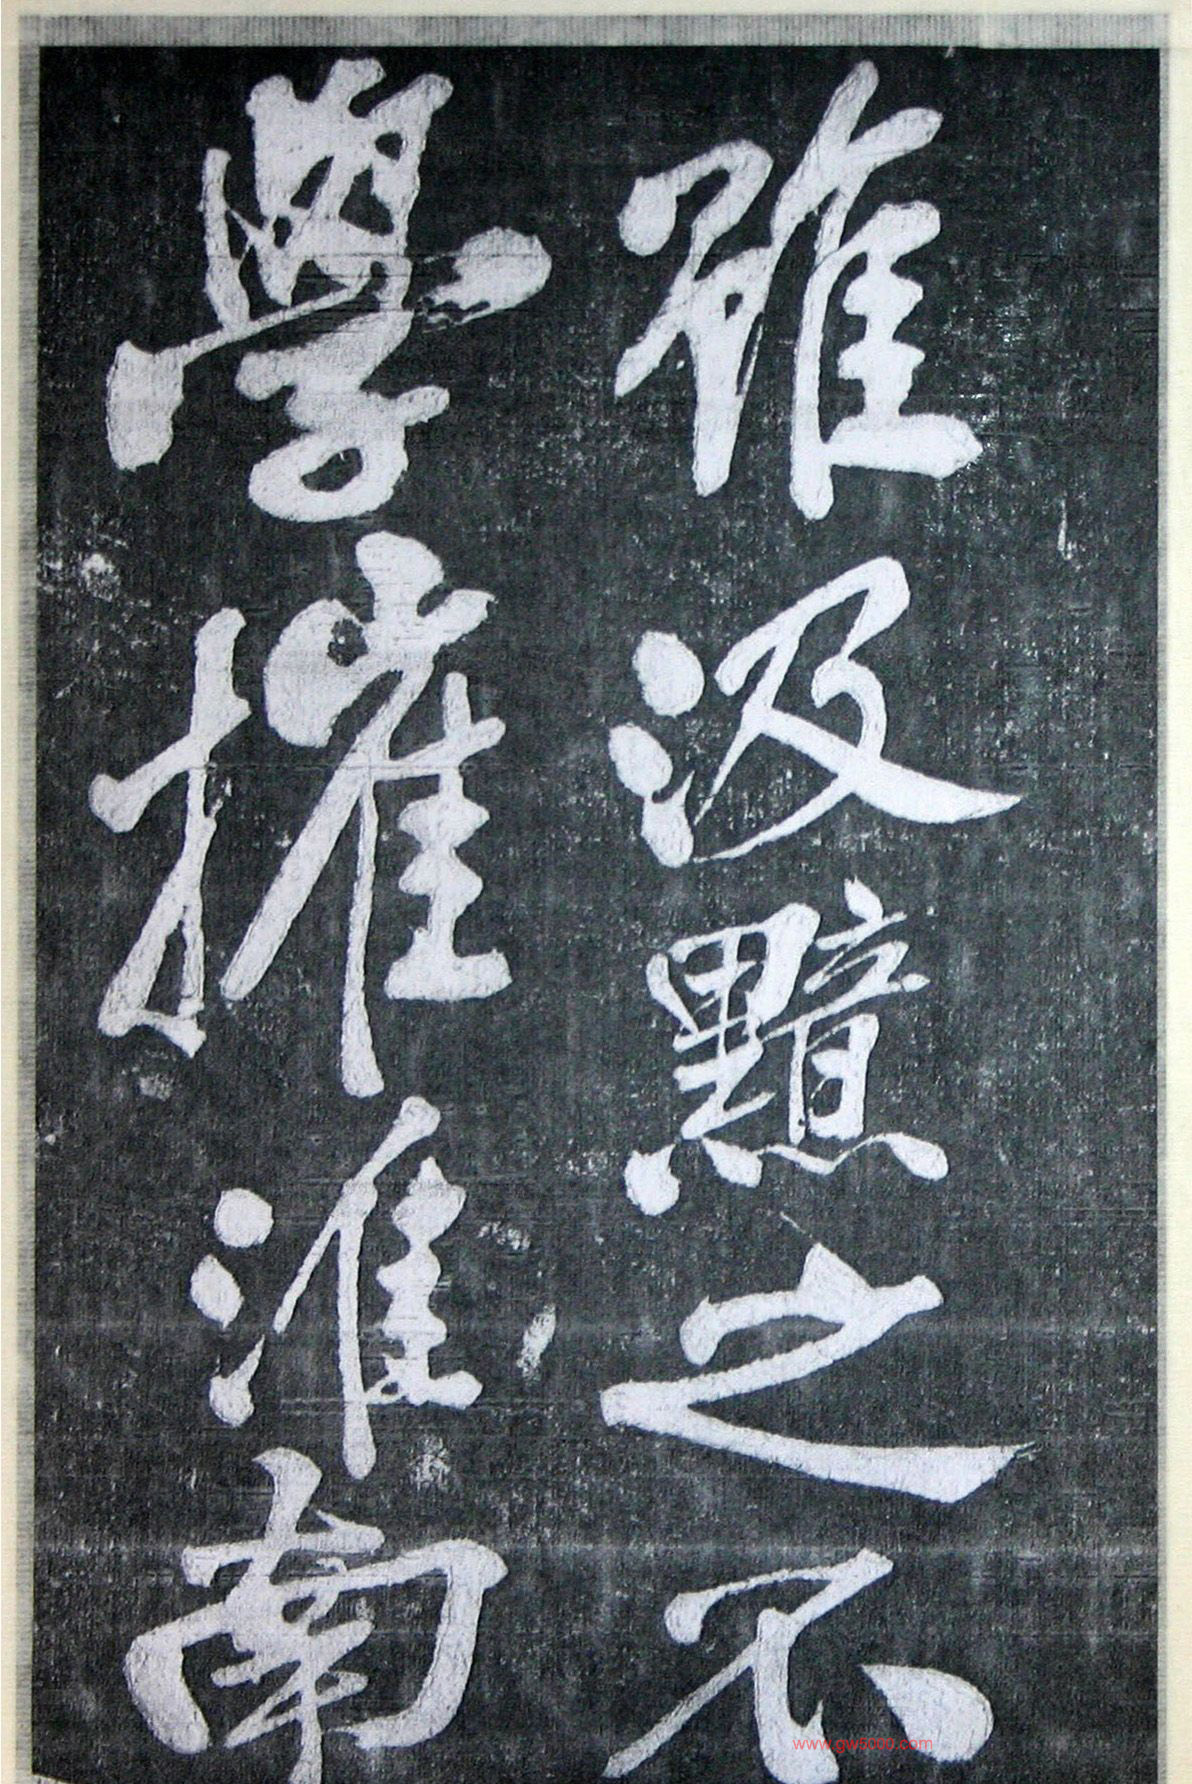 雖汲黯之不
學摧淮南
www.gw5000.com